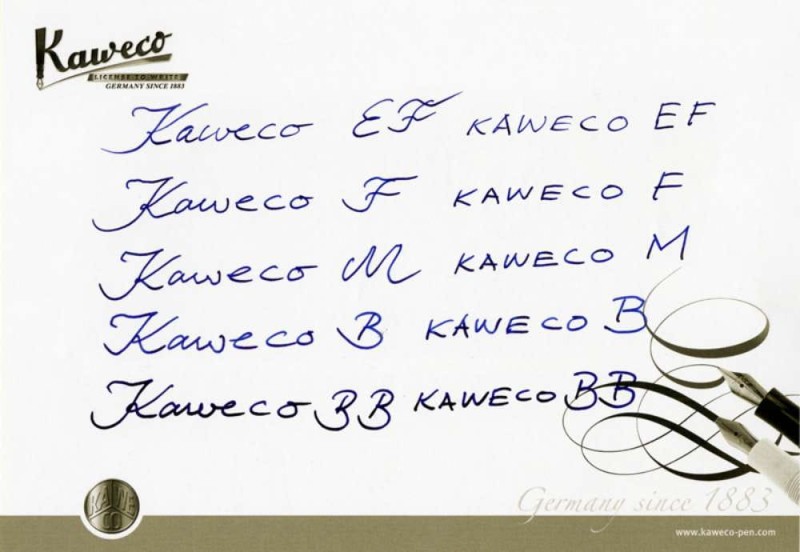 Kaweco
LICENSE TO WRITE
GERMANY SINCE 1883
Kaweco EF KAWECO EF
Kaweco F KAWECO F
Kaweco M KAWECO M
Kaweco B KAWECO B
Kaweco BB KAWECO BB
KAWE
CO
Germany since 1883
www.kaweco-pen.com